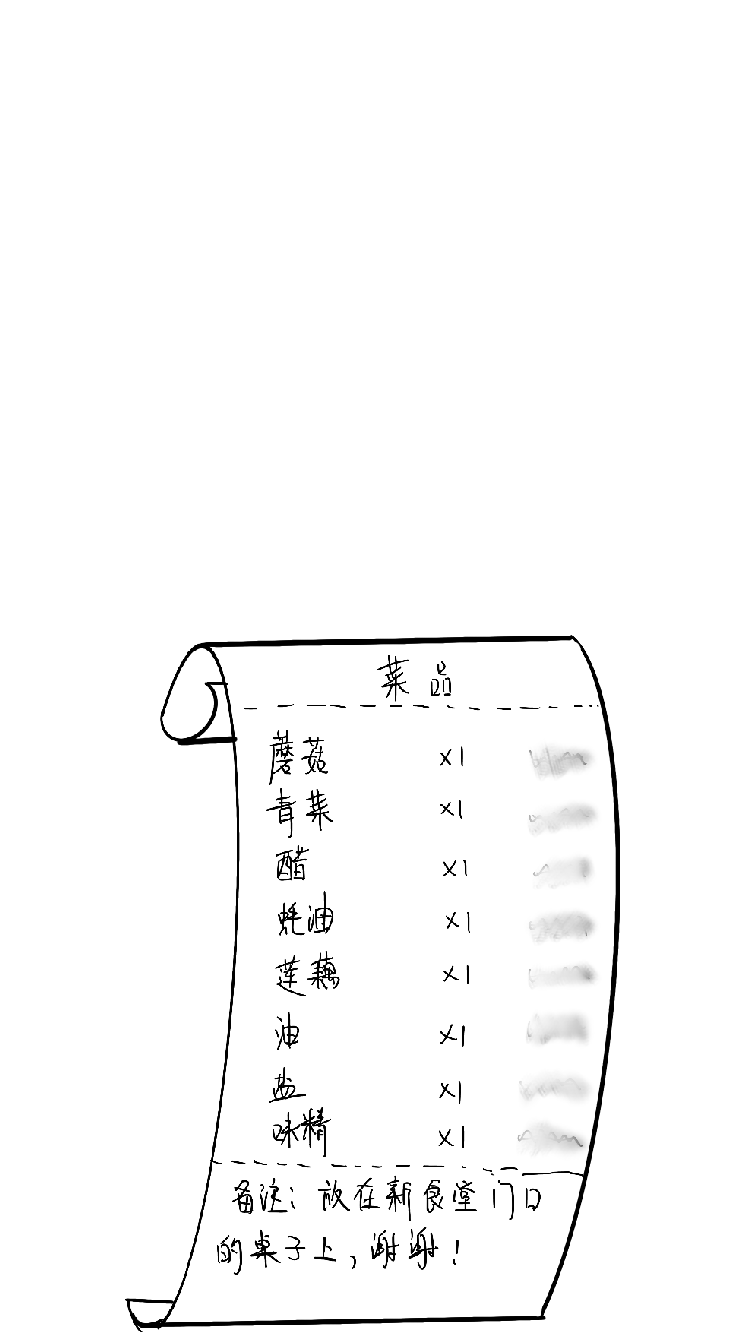 菜品
蘑菇 ×1
青菜 ×1
醋 ×1
蚝油 ×1
莲藕 ×1
油 ×1
盐 ×1
味精 ×1
备注：放在新食堂门口
的桌子上，谢谢！